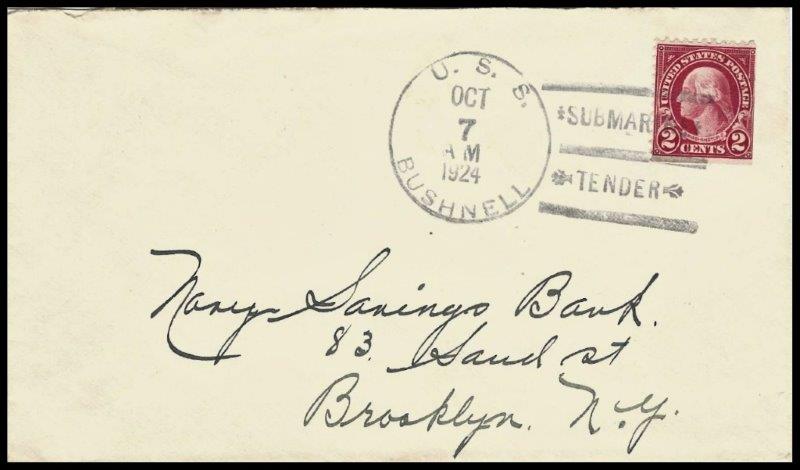 U. S. S.
OCT
7
AM
1924
BUSHNELL
SUBMARI
TENDER
UNITED STATES POSTAGE
2 CENTS 2
Navy Savings Bank.
83. Sand st
Brooklyn. N.Y.